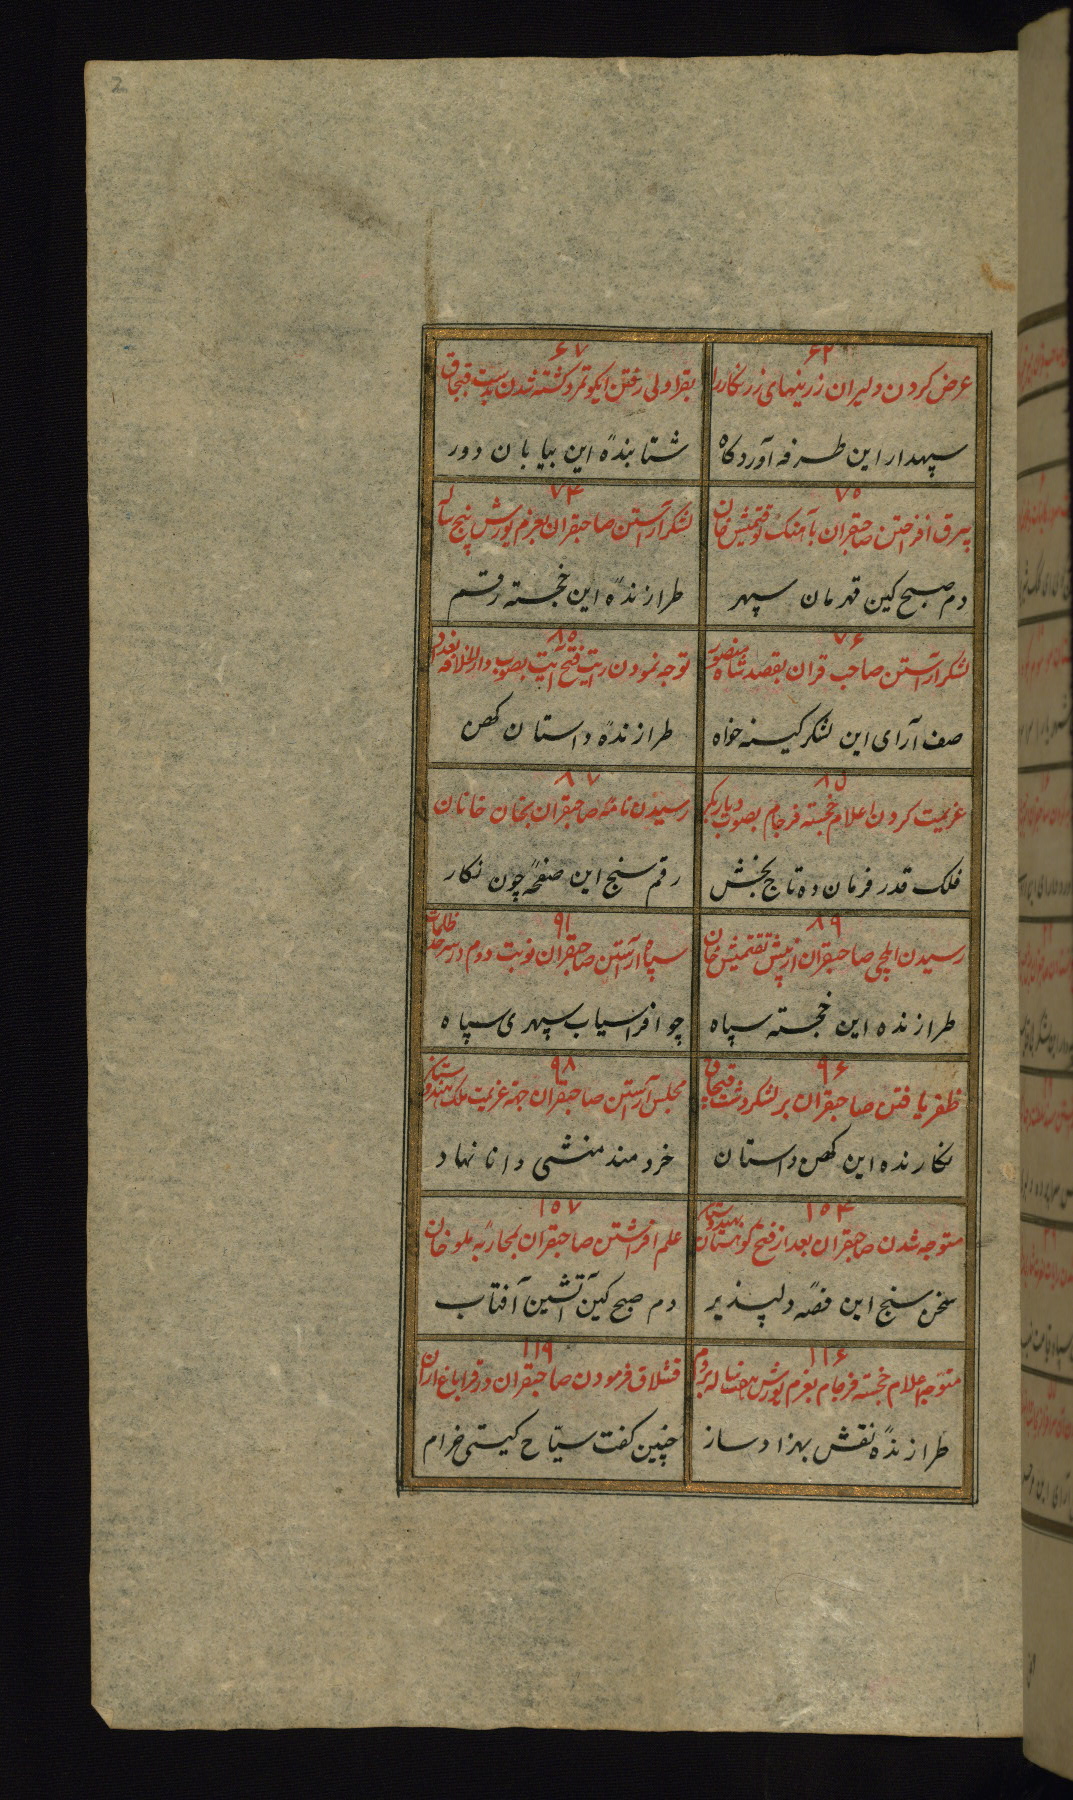 2
۶۲
عرض کردن دلیران زرینهای زرنکار را
سپهدار این طرفه آوردکاه
۶۷
بقراولی رفتن ایکو تمر و کشته شدن بدست قبچاق
شتابندهٔ این بیابان دور
۷۵
بیرق افراختن صاحبقران بآهنک توقتمیش خان
دم صبح کین قهرمان سپهر
۷۴
لشکر آراستن صاحبقران بعزم یورش پنج ساله
طرازندهٔ این خجسته رقم
۷۶
لشکر آراستن صاحب قران بقصد شاه منصور
صف آرای این لشکر کینه خواه
۸۵
توجه نمودن رایت فتح آیت بصوب دارالخلافه بغداد
طرازندهٔ داستان کهن
۸۵
عزیمت کردن اعلام خجسته فرجام بصوب دیار بکر
فلک قدر فرمان ده تاج بخش
۸۷
رسیدن نامهٔ صاحبقران بخان خانان
رقم سنج این صفحهٔ چون نکار
۸۹
رسیدن ایلچی صاحبقران از پیش تقتمیش خان
طرازنده این خجسته سپاه
۹۱
سپاه آراستن صاحبقران نوبت دوم در سرحد ظلمات
چو افراسیاب سپهری سپاه
۹۶
ظفر یافتن صاحبقران بر لشکر دشت قبچاق
نکارنده این کهن داستان
۹۸
مجلس آراستن صاحبقران جهة عزیمت ملک هندوستان
خردمند منشی دانا نهاد
۱۵۴
متوجه شدن صاحبقران بعد از فتح کوهستان بهندوستان
سخن سنج این قصهٔ دلپذیر
۱۵۷
علم افراشتن صاحبقران بمحاربه ملو خان
دم صبح کین آتشین آفتاب
۱۱۶
متوجه اعلام خجسته فرجام بعزم یورش هفت ساله بروم
طرازندهٔ نقش بهزاد ساز
۱۱۹
قشلاق فرمودن صاحبقران در قراباغ اران
چنین کفت سیّاح کیتی خرام